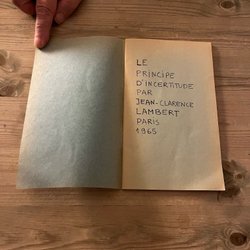 LE
PRINCIPE
D'INCERTITUDE
PAR
JEAN-CLARENCE
LAMBERT
PARIS
1965